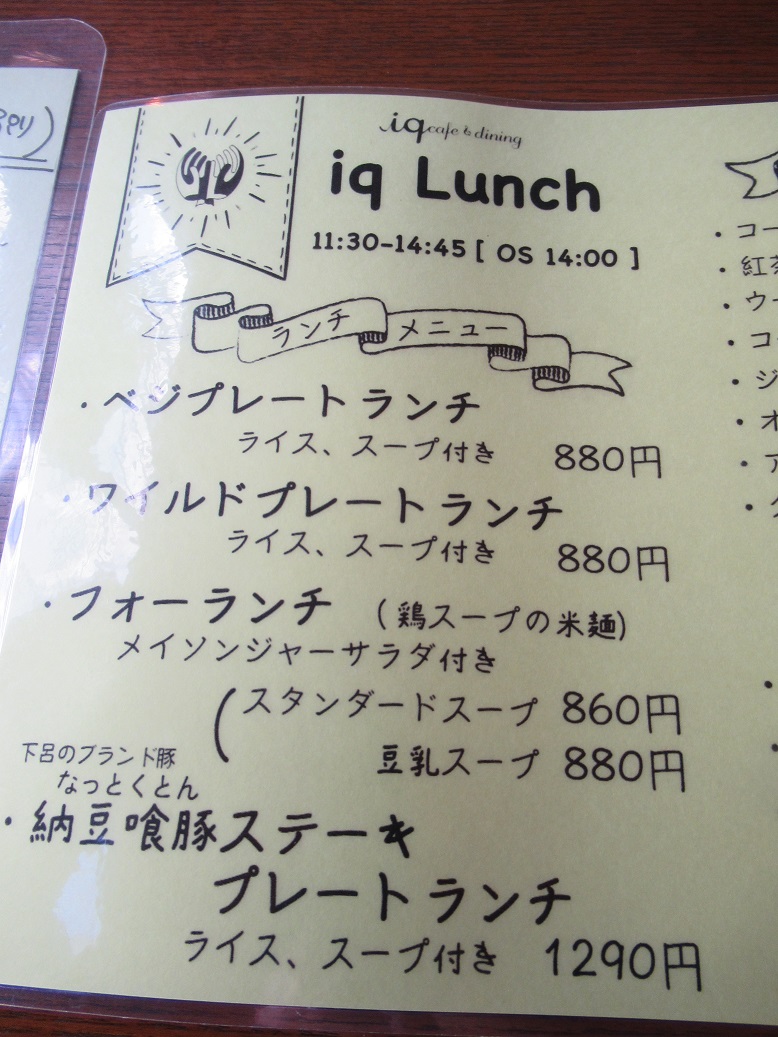 iq cafe & dining
iq Lunch
11:30-14:45 [ OS 14:00 ]
ランチ メニュー
・ベジプレートランチ
ライス、スープ付き 880円
・ワイルドプレートランチ
ライス、スープ付き 880円
・フォーランチ (鶏スープの米麺)
メイソンジャーサラダ付き
(スタンダードスープ 860円
豆乳スープ 880円
下呂のブランド豚
なっとくとん
・納豆喰豚ステーキ
プレートランチ
ライス、スープ付き 1290円
・コー
・紅茶
・ウー
・コー
・ジ
・オ
・ア